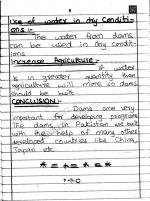 Use of water in dry Conditi-
ons :-
The water from dams
can be used in dry condit-
ions.
Increase Agriculture :-
If water
is in greater quantity then
agriculture will more so dams
should be built.
CONCLUSION :-
Dams are very
important for developing programs
The dams in Pakistan are built
with the help of many other
developed countries like China,
Japan etc